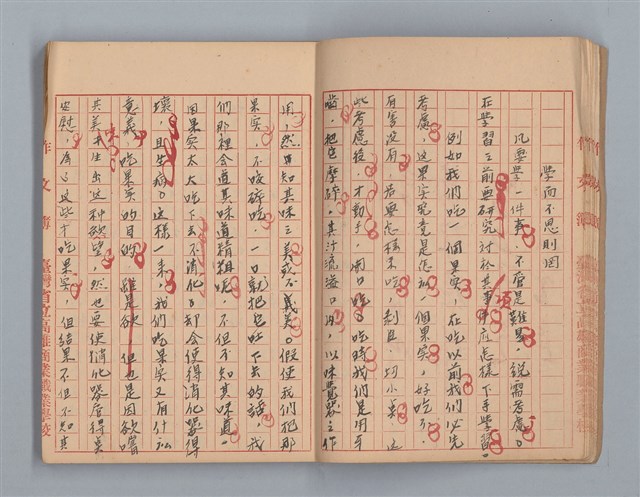 學而不思則罔
凡要學一件事，不管是難是易，說需考慮。
在學習之前要研究討於其事件應怎樣下手學習。
例如我們吃一個果實，在吃以前我們必先
考慮，這果實究竟是怎樣一個果實，好吃不，
有害沒有，若要怎樣來吃，刮皮，切小塊，這
此考慮後，才動手，開口吃。吃時我們是用牙
齒，把它摩碎，其汁流滿口內，以味覺器之作
用，然也知其味之美或不美。假使我們把那
果實，不咬碎吃，一口就把它吐下去的話，我
們那裡會道其味道精粗呢，不但不知其味道。
因果實太大吃下去不消化，却會使得消化器得
壞，且生病。這樣一來，我們吃果實又有什么
意義，吃果實的目的，雖是欲，但也是因欲嘗
其美才生出这种慾望，然也要使消化器官得安
慰，為了这些才吃果實，但結果不但不知其
作文簿
臺灣省立高雄商業職業學校